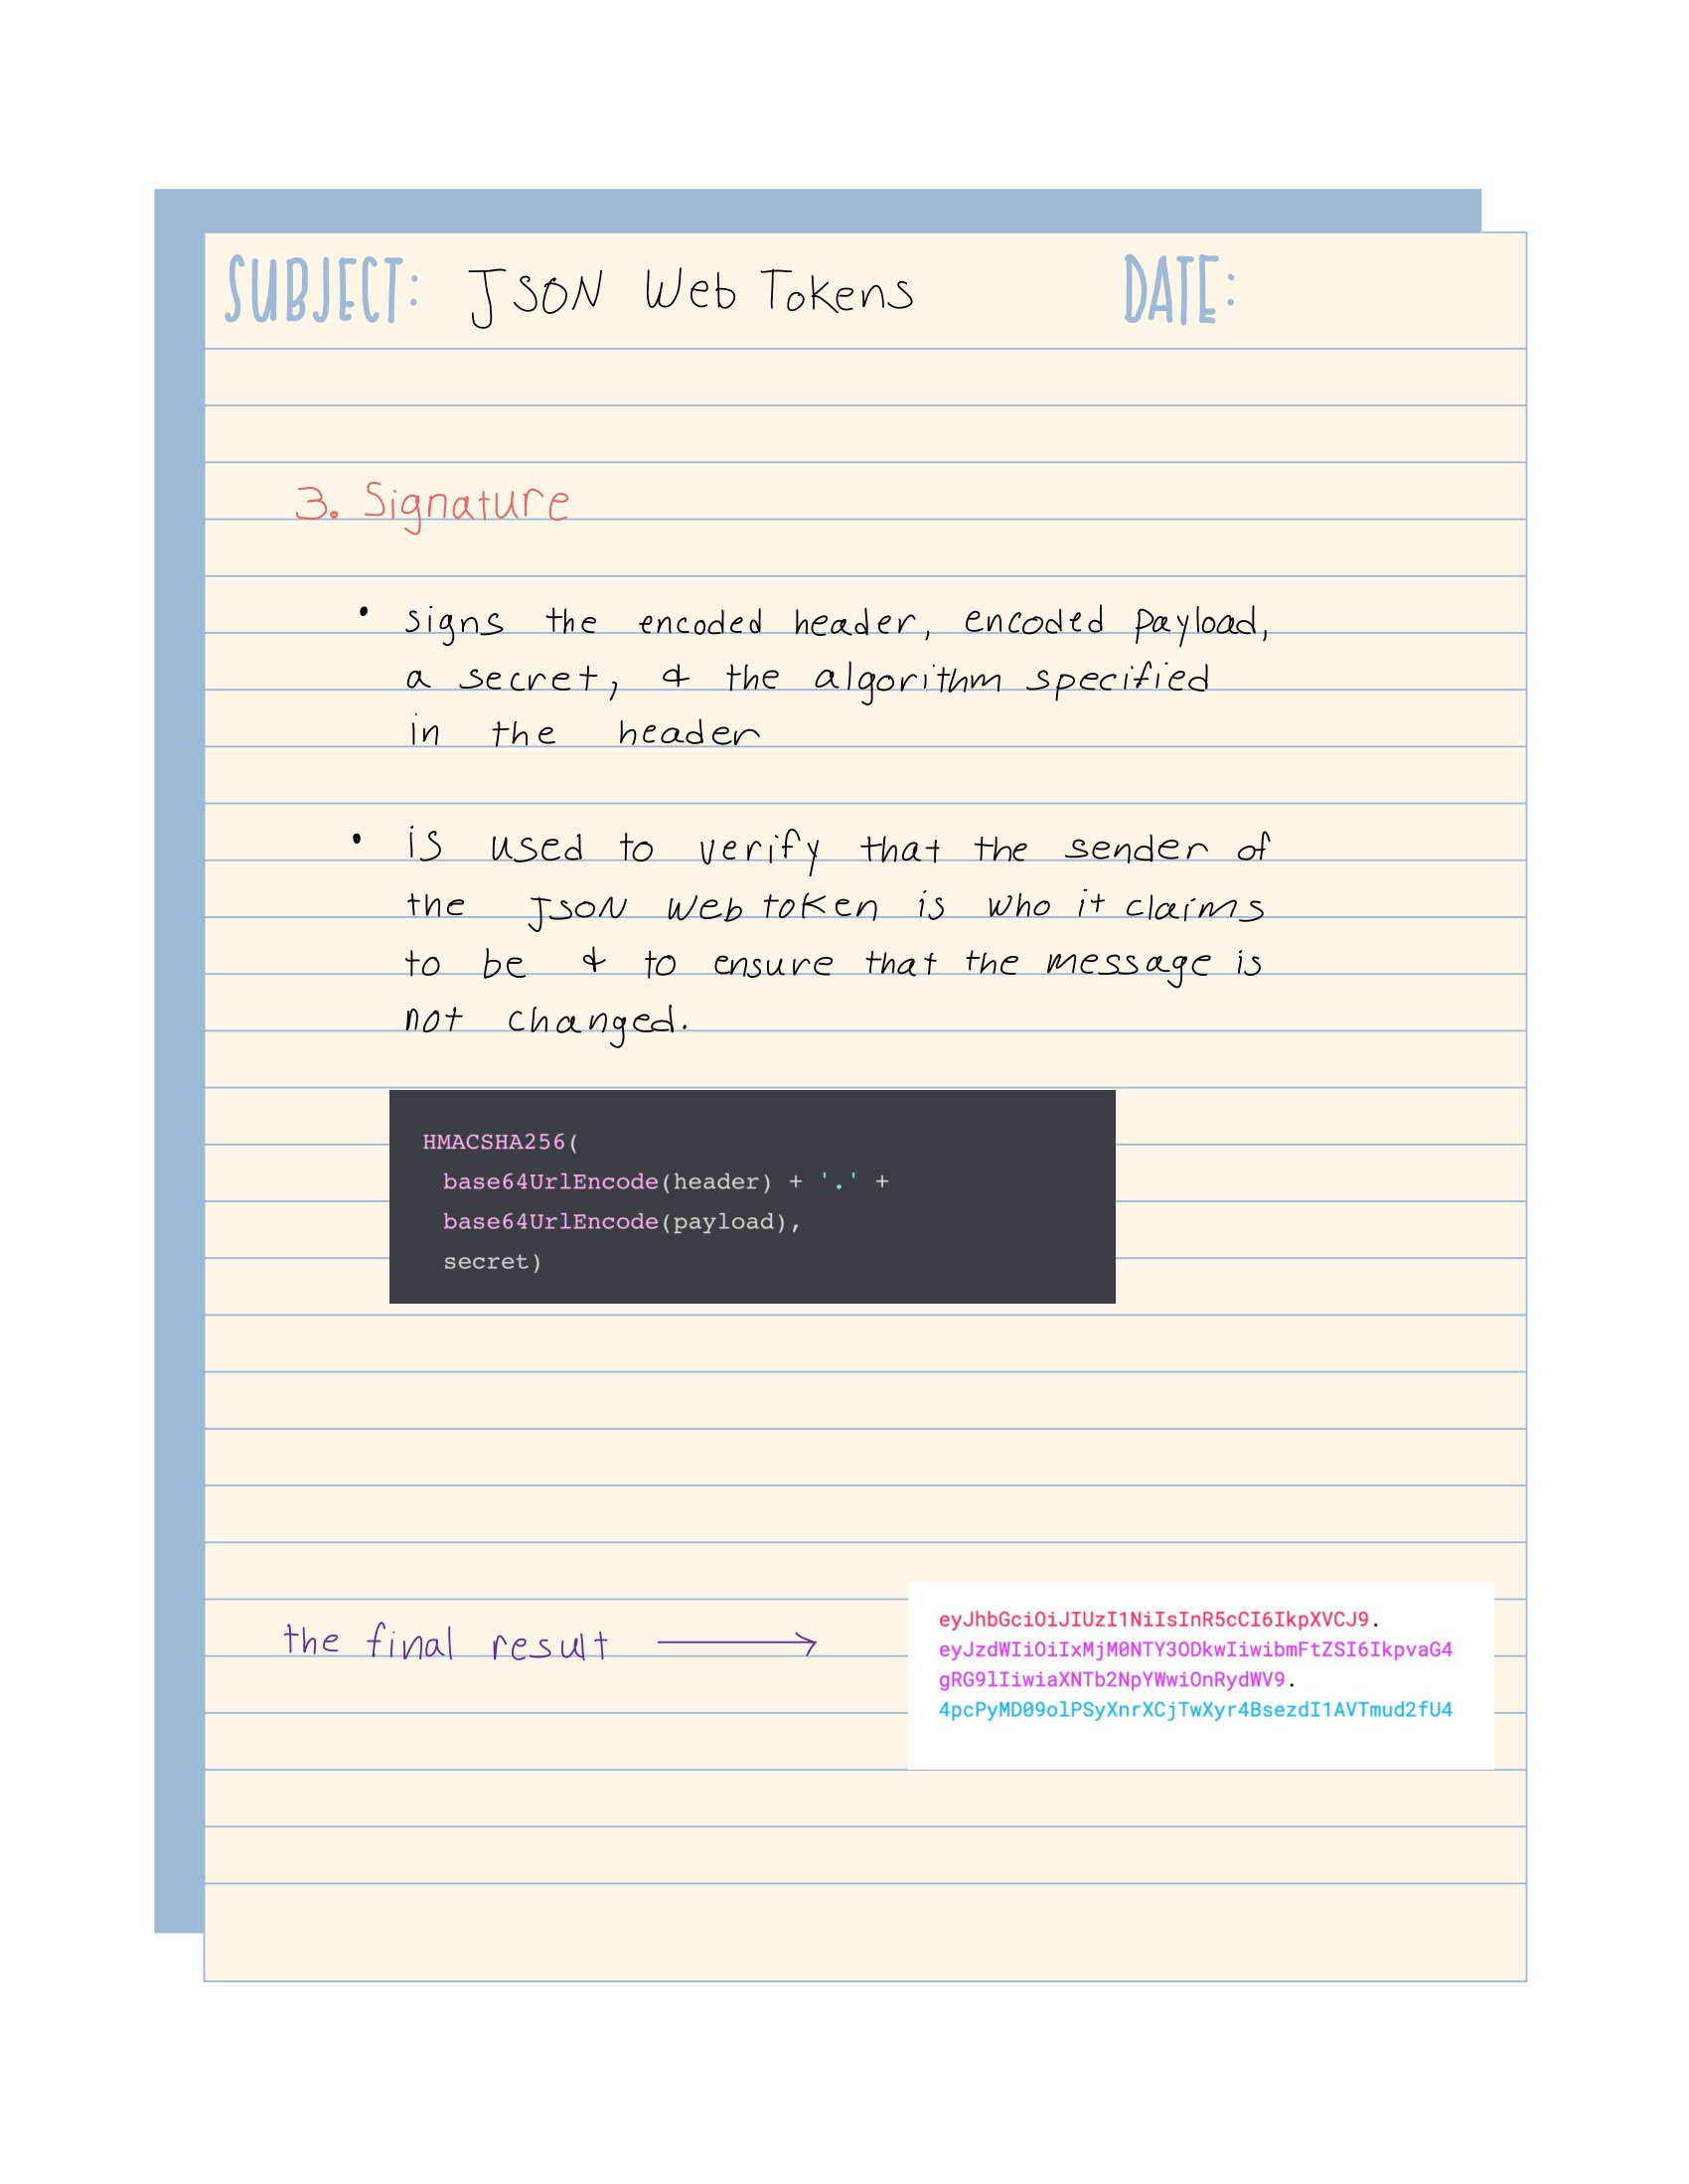 SUBJECT: JSON Web Tokens DATE:
3. Signature
• signs the encoded header, encoded payload,
a secret, & the algorithm specified
in the header
• is used to verify that the sender of
the JSON Web token is who it claims
to be & to ensure that the message is
not changed.
HMACSHA256(
base64UrlEncode(header) + '.' +
base64UrlEncode(payload),
secret)
the final result →
eyJhbGciOiJIUzI1NiIsInR5cCI6IkpXVCJ9.
eyJzdWIiOiIxMjM0NTY3ODkwIiwibmFtZSI6IkpvaG4
gRG9lIiwiaXNTb2NpYWwiOnRydWV9.
4pcPyMD09olPSyXnrXCjTwXyr4BsezdI1AVTmud2fU4